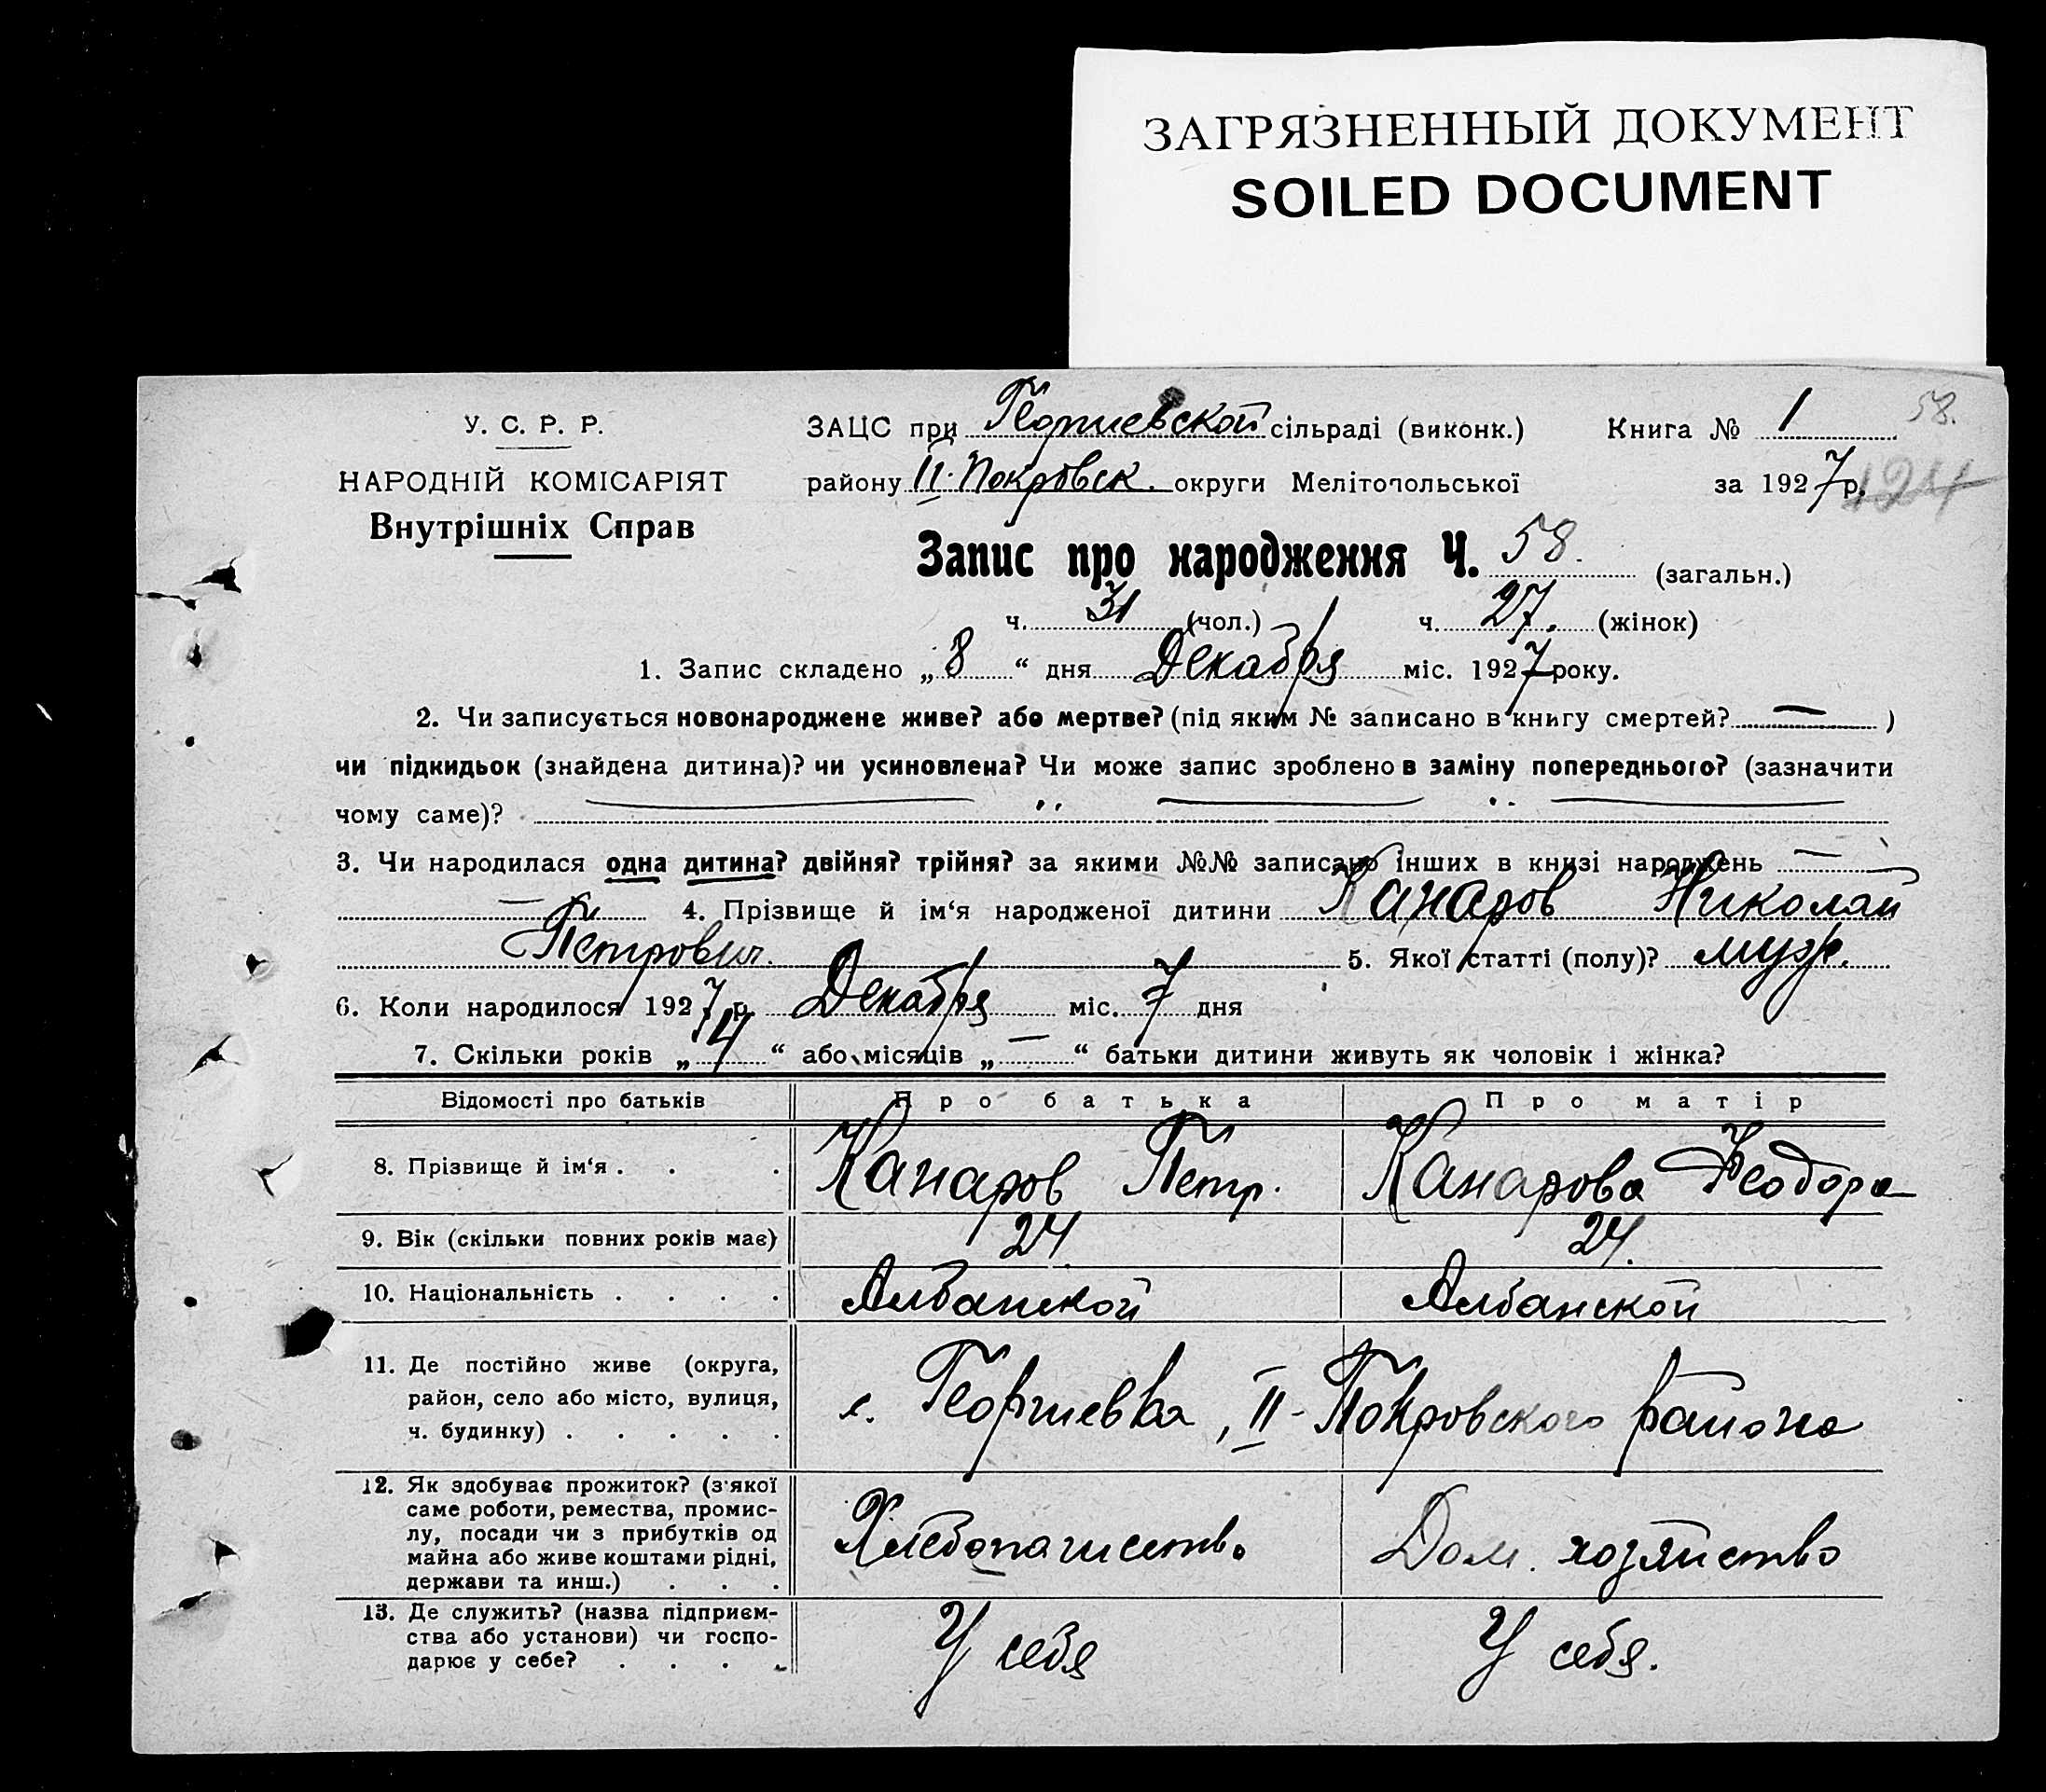 ЗАГРЯЗНЕННЫЙ ДОКУМЕНТ
SOILED DOCUMENT
У. С. Р. Р.
НАРОДНІЙ КОМІСАРІЯТ
Внутрішніх Справ
ЗАЦС при Георгиевской сільраді (виконк.) Книга № 1 58.
району II-Покровск. округи Мелітопольської за 1927 р. 124
Запис про народження Ч. 58. (загальн.)
ч. 31 (чол.) ч. 27. (жінок)
1. Запис складено „8“ дня Декабря міс. 1927 року.
2. Чи записується новонароджене живе? або мертве? (під яким № записано в книгу смертей? — )
чи підкидьок (знайдена дитина)? чи усиновлена? Чи може запис зроблено в заміну попереднього? (зазначити
чому саме)? — „ — „ —
3. Чи народилася одна дитина? двійня? трійня? за якими №№ записано інших в книзі народжень —
— 4. Прізвище й ім‘я народженої дитини Канаров Николай
Петрович. 5. Якої статті (полу)? муж.
6. Коли народилося 1927 р. Декабря міс. 7 дня
7. Скільки років „4“ або місяців „—“ батьки дитини живуть як чоловік і жінка?
Відомості про батьків Про батька Про матір
8. Прізвище й ім‘я . . . Канаров Петр. Канарова Феодора
9. Вік (скільки повних років має) 24 24.
10. Національність . . . . Албанской Албанской
11. Де постійно живе (округа,
район, село або місто, вулиця,
ч. будинку) . . . . .
с. Георгиевка, II-Покровского района
12. Як здобуває прожиток? (з‘якої
саме роботи, ремества, промис-
лу, посади чи з прибутків од
майна або живе коштами рідні,
держави та инш.) . . .
Хлебопашество Дом. хозяйство
13. Де служить? (назва підприєм-
ства або установи) чи госпо-
дарює у себе? . . . .
У себя У себя.